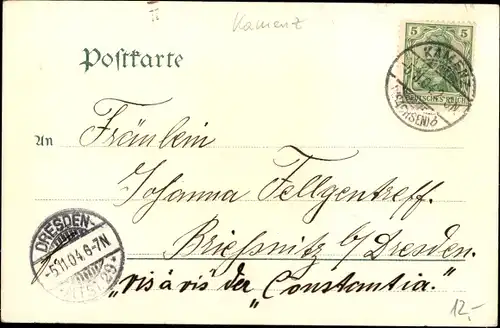 Kamenz
Postkarte
5 5
DEUTSCHES REICH
KAMENZ
(SACHSEN)
An
Fräulein
Johanna Fellgentreff.
Briesnitz b/Dresden.
„vis à vis der „Constantia."
DRESDEN-
-5.11.04.6-7N
12,-